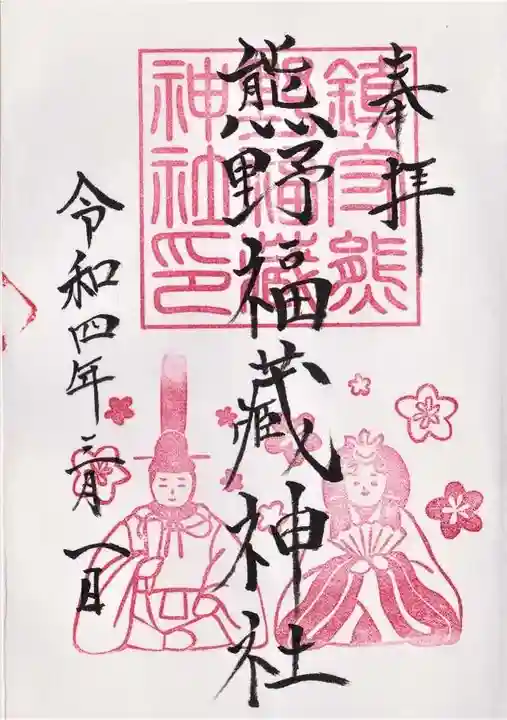 奉拝
熊野福藏神社
令和四年三月一日
鎮守熊
野福藏
神社印